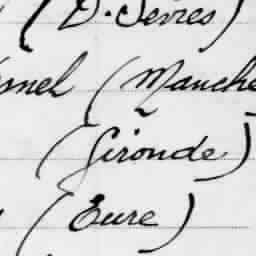 (D. Sèvres)
(Manche
(Gironde)
(Eure)